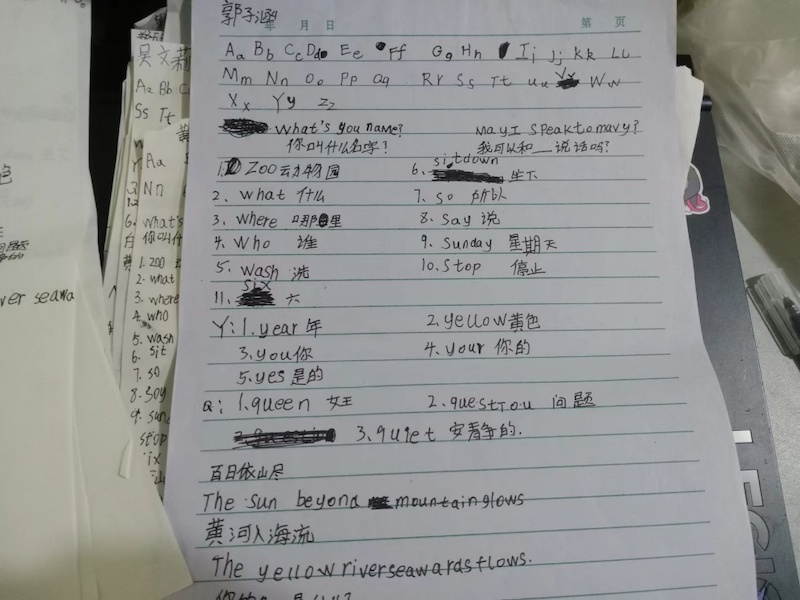 郭子涵
年 月 日 第 页
Aa Bb Cc Dd Ee Ff Gg Hh Ii Jj Kk Ll
Mm Nn Oo Pp Qq Rr Ss Tt uu Vv Ww
Xx Yy Zz
What's you name? MayI speaktomavy?
你叫什么名字? 我可以和__说话吗?
1. Zoo 动物园 6. sitdown 坐下
2. what 什么 7. so 所以
3. where 哪里 8. say 说
4. who 谁 9. sunday 星期天
5. wash 洗 10. stop 停止
11. six 六
Y: 1. year 年 2. yellow 黄色
3. you 你 4. your 你的
5. yes 是的
Q: 1. queen 女王 2. questTou 问题
3. quiet 安静的.
百日依山尽
The sun beyond mountainglows
黄河入海流
The yellowriverseawardsflows.
吴文莉
Aa Bb C
Ss Tt
Aa
Nn
What's
你叫什
1. zoo
2. what
3. where
4. who
5. wash
6. sit
7. so
8. say
9. sund
stop
ix
ver seawa